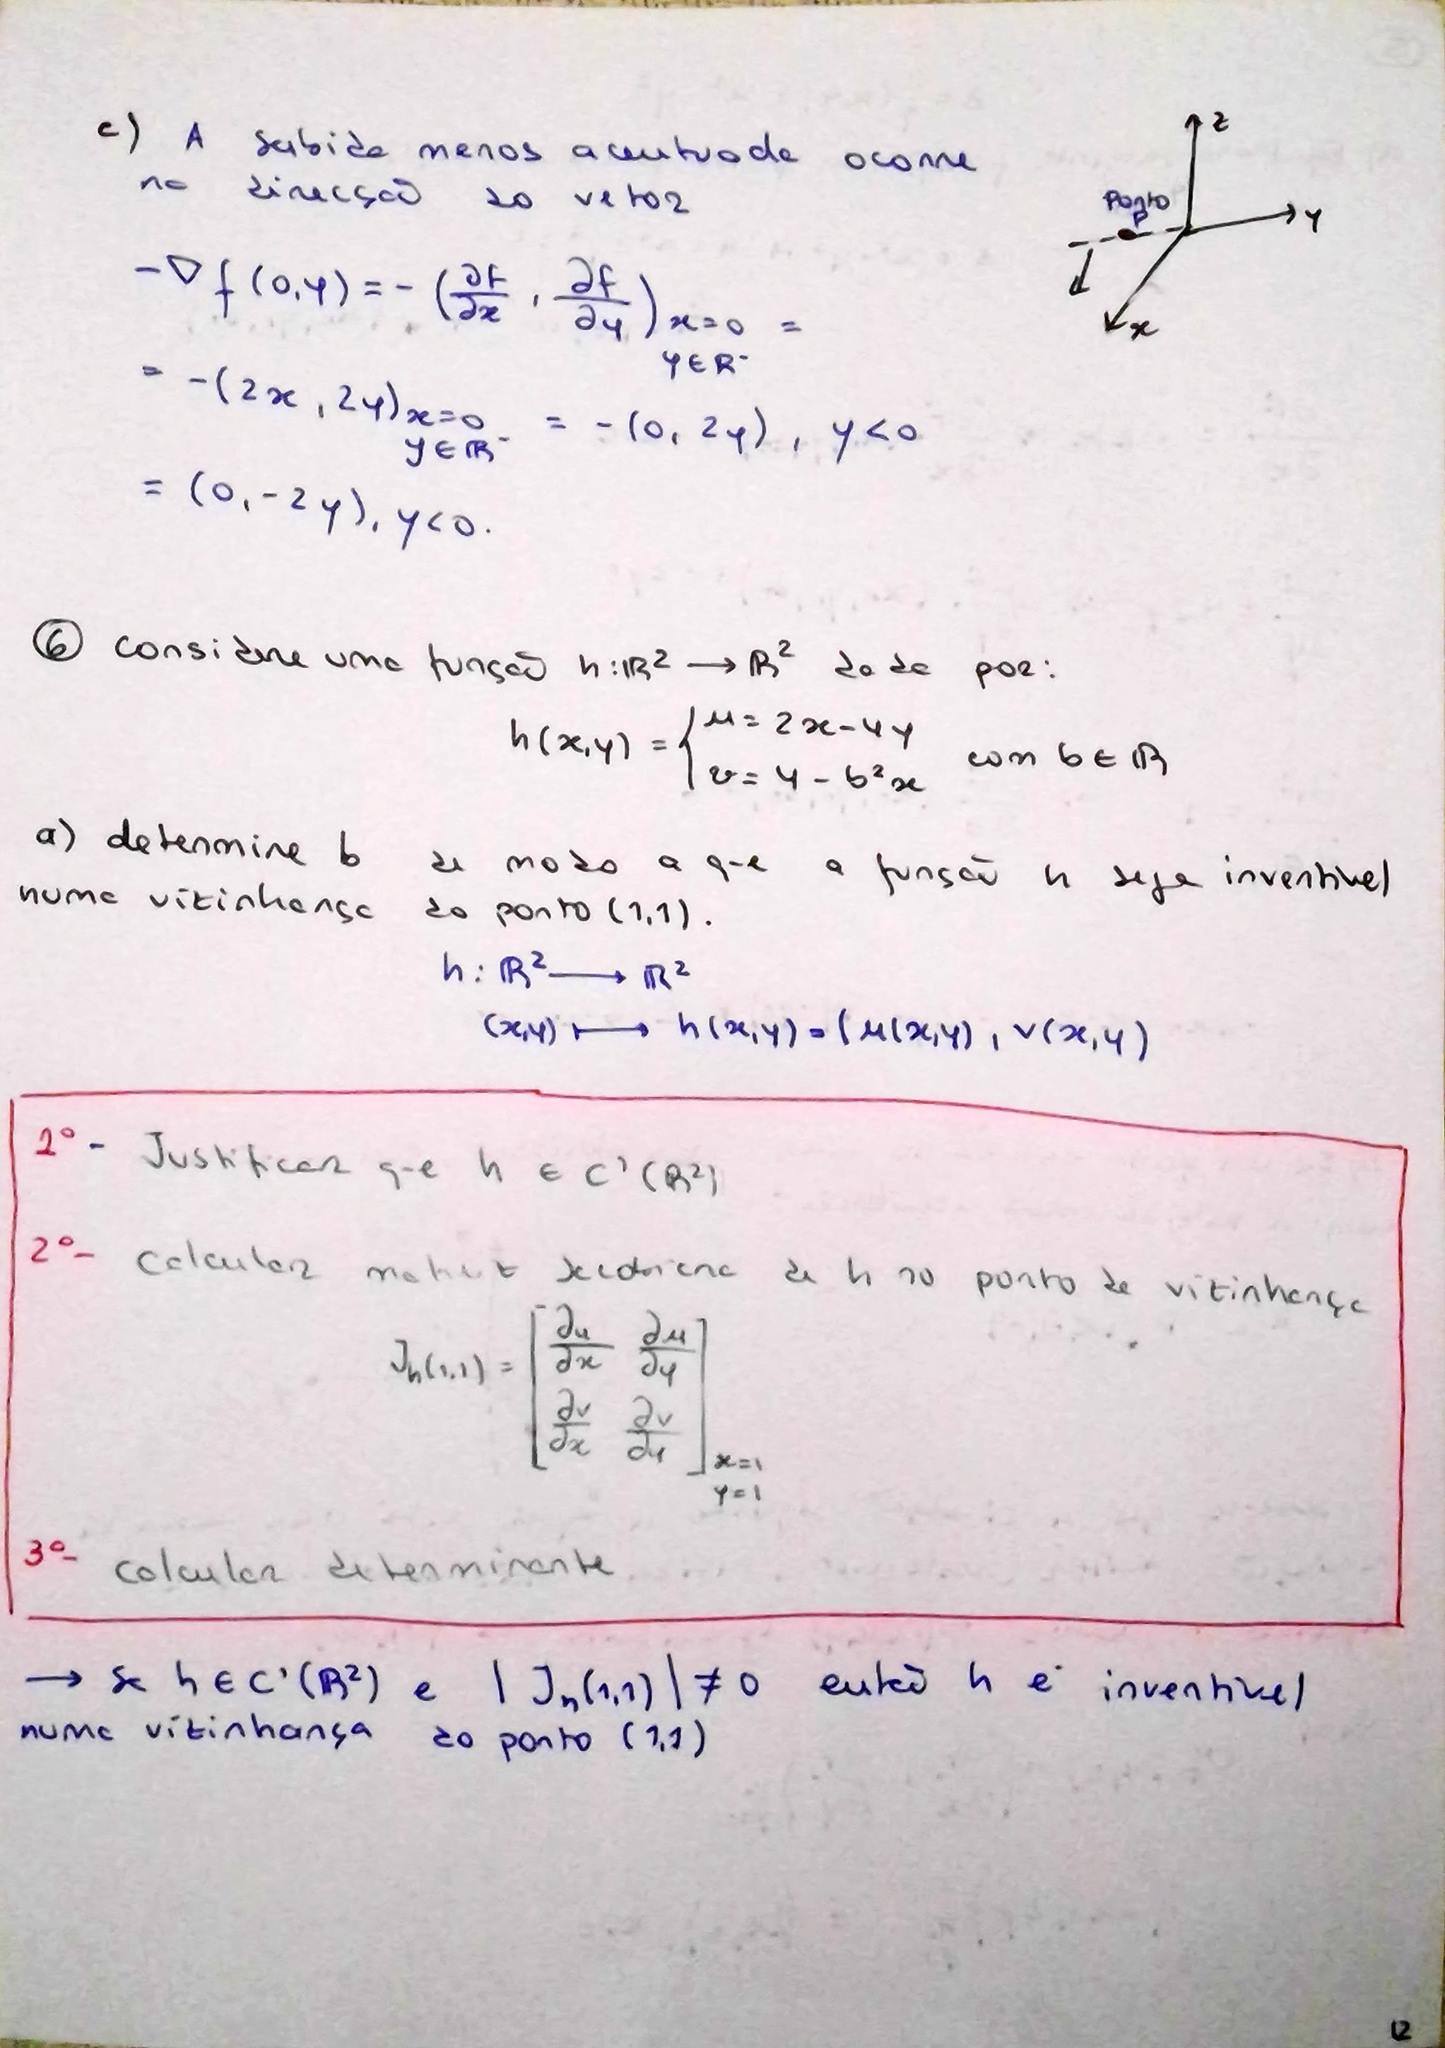 c) A subida menos acentuada ocorre
na direcção do vetor
z
Ponto
P
y
x
-∇f(0,y) = -(∂f/∂x, ∂f/∂y) x=0 =
y∈R-
= -(2x, 2y) x=0 = -(0, 2y), y<0
y∈R-
= (0, -2y), y<0.
⑥ considere uma função h: R² → R² dada por:
h(x,y) = { u = 2x-4y
v = y - b²x com b ∈ R
a) determine b de modo a que a função h seja invertível
numa vizinhança do ponto (1,1).
h: R² → R²
(x,y) ↦ h(x,y) = (u(x,y), v(x,y)
1º - Justificar que h ∈ C'(R²)
2º - calcular matriz Jacobiana de h no ponto de vizinhança
Jh(1,1) = [ ∂u/∂x ∂u/∂y
∂v/∂x ∂v/∂y ] x=1
y=1
3º - calcular determinante
→ se h ∈ C'(R²) e |Jh(1,1)| ≠ 0 então h é invertível
numa vizinhança do ponto (1,1)
12